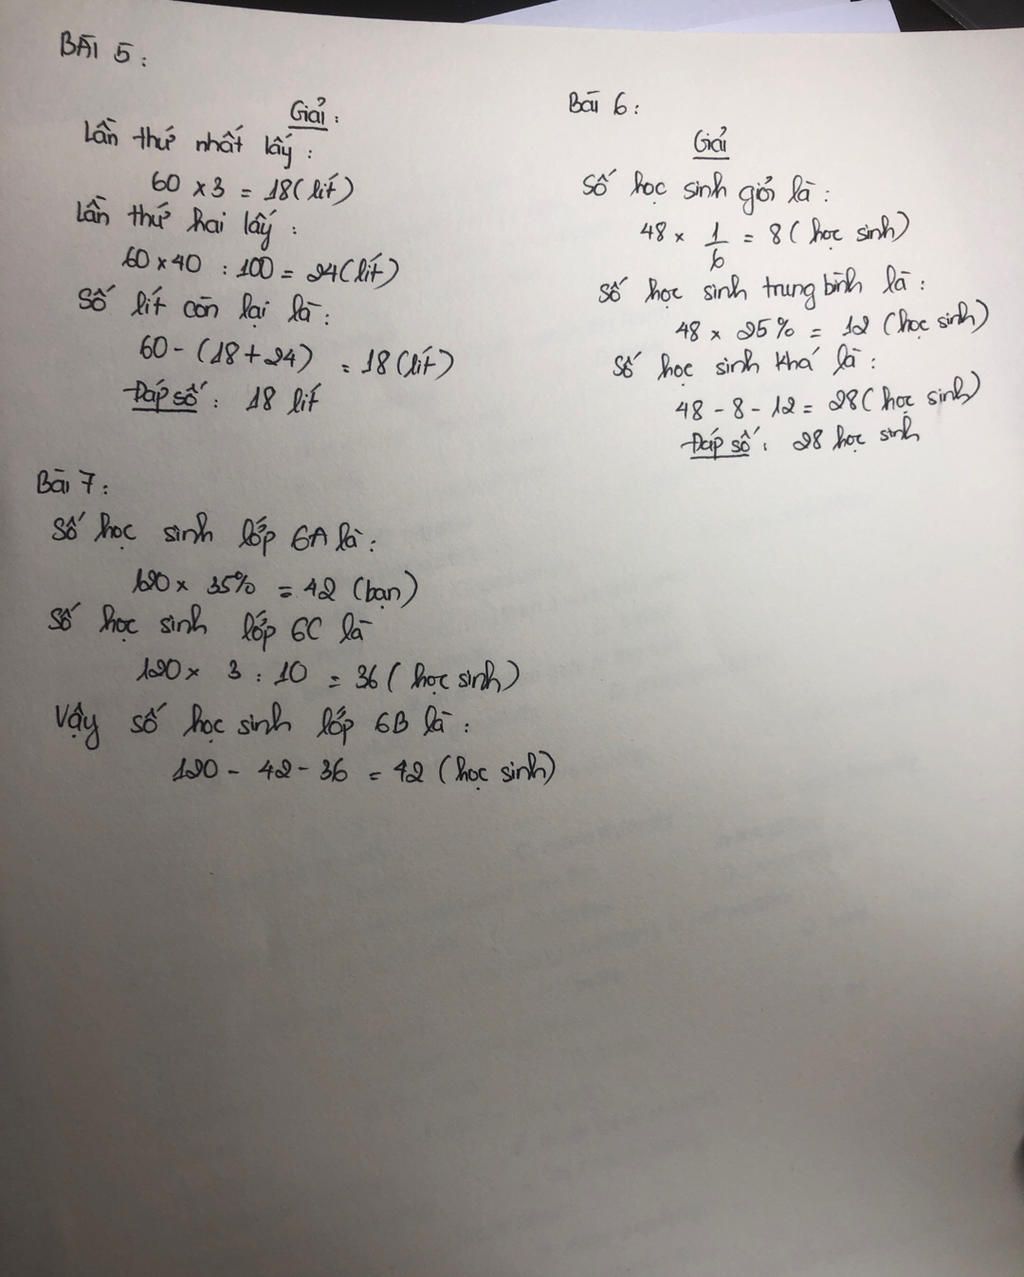 BÀI 5 :
Giải :
Lần thứ nhất lấy :
60 x 3 = 18 (lít)
Lần thứ hai lấy :
60 x 40 : 100 = 24 (lít)
Số lít còn lại là :
60 - (18 + 24) = 18 (lít)
Đáp số : 18 lít
Bài 6 :
Giải
Số học sinh giỏi là :
48 x 1/6 = 8 (học sinh)
Số học sinh trung bình là :
48 x 25% = 12 (học sinh)
Số học sinh khá là :
48 - 8 - 12 = 28 (học sinh)
Đáp số : 28 học sinh
Bài 7 :
Số học sinh lớp 6A là :
120 x 35% = 42 (bạn)
Số học sinh lớp 6C là
120 x 3 : 10 = 36 (học sinh)
Vậy số học sinh lớp 6B là :
120 - 42 - 36 = 42 (học sinh)